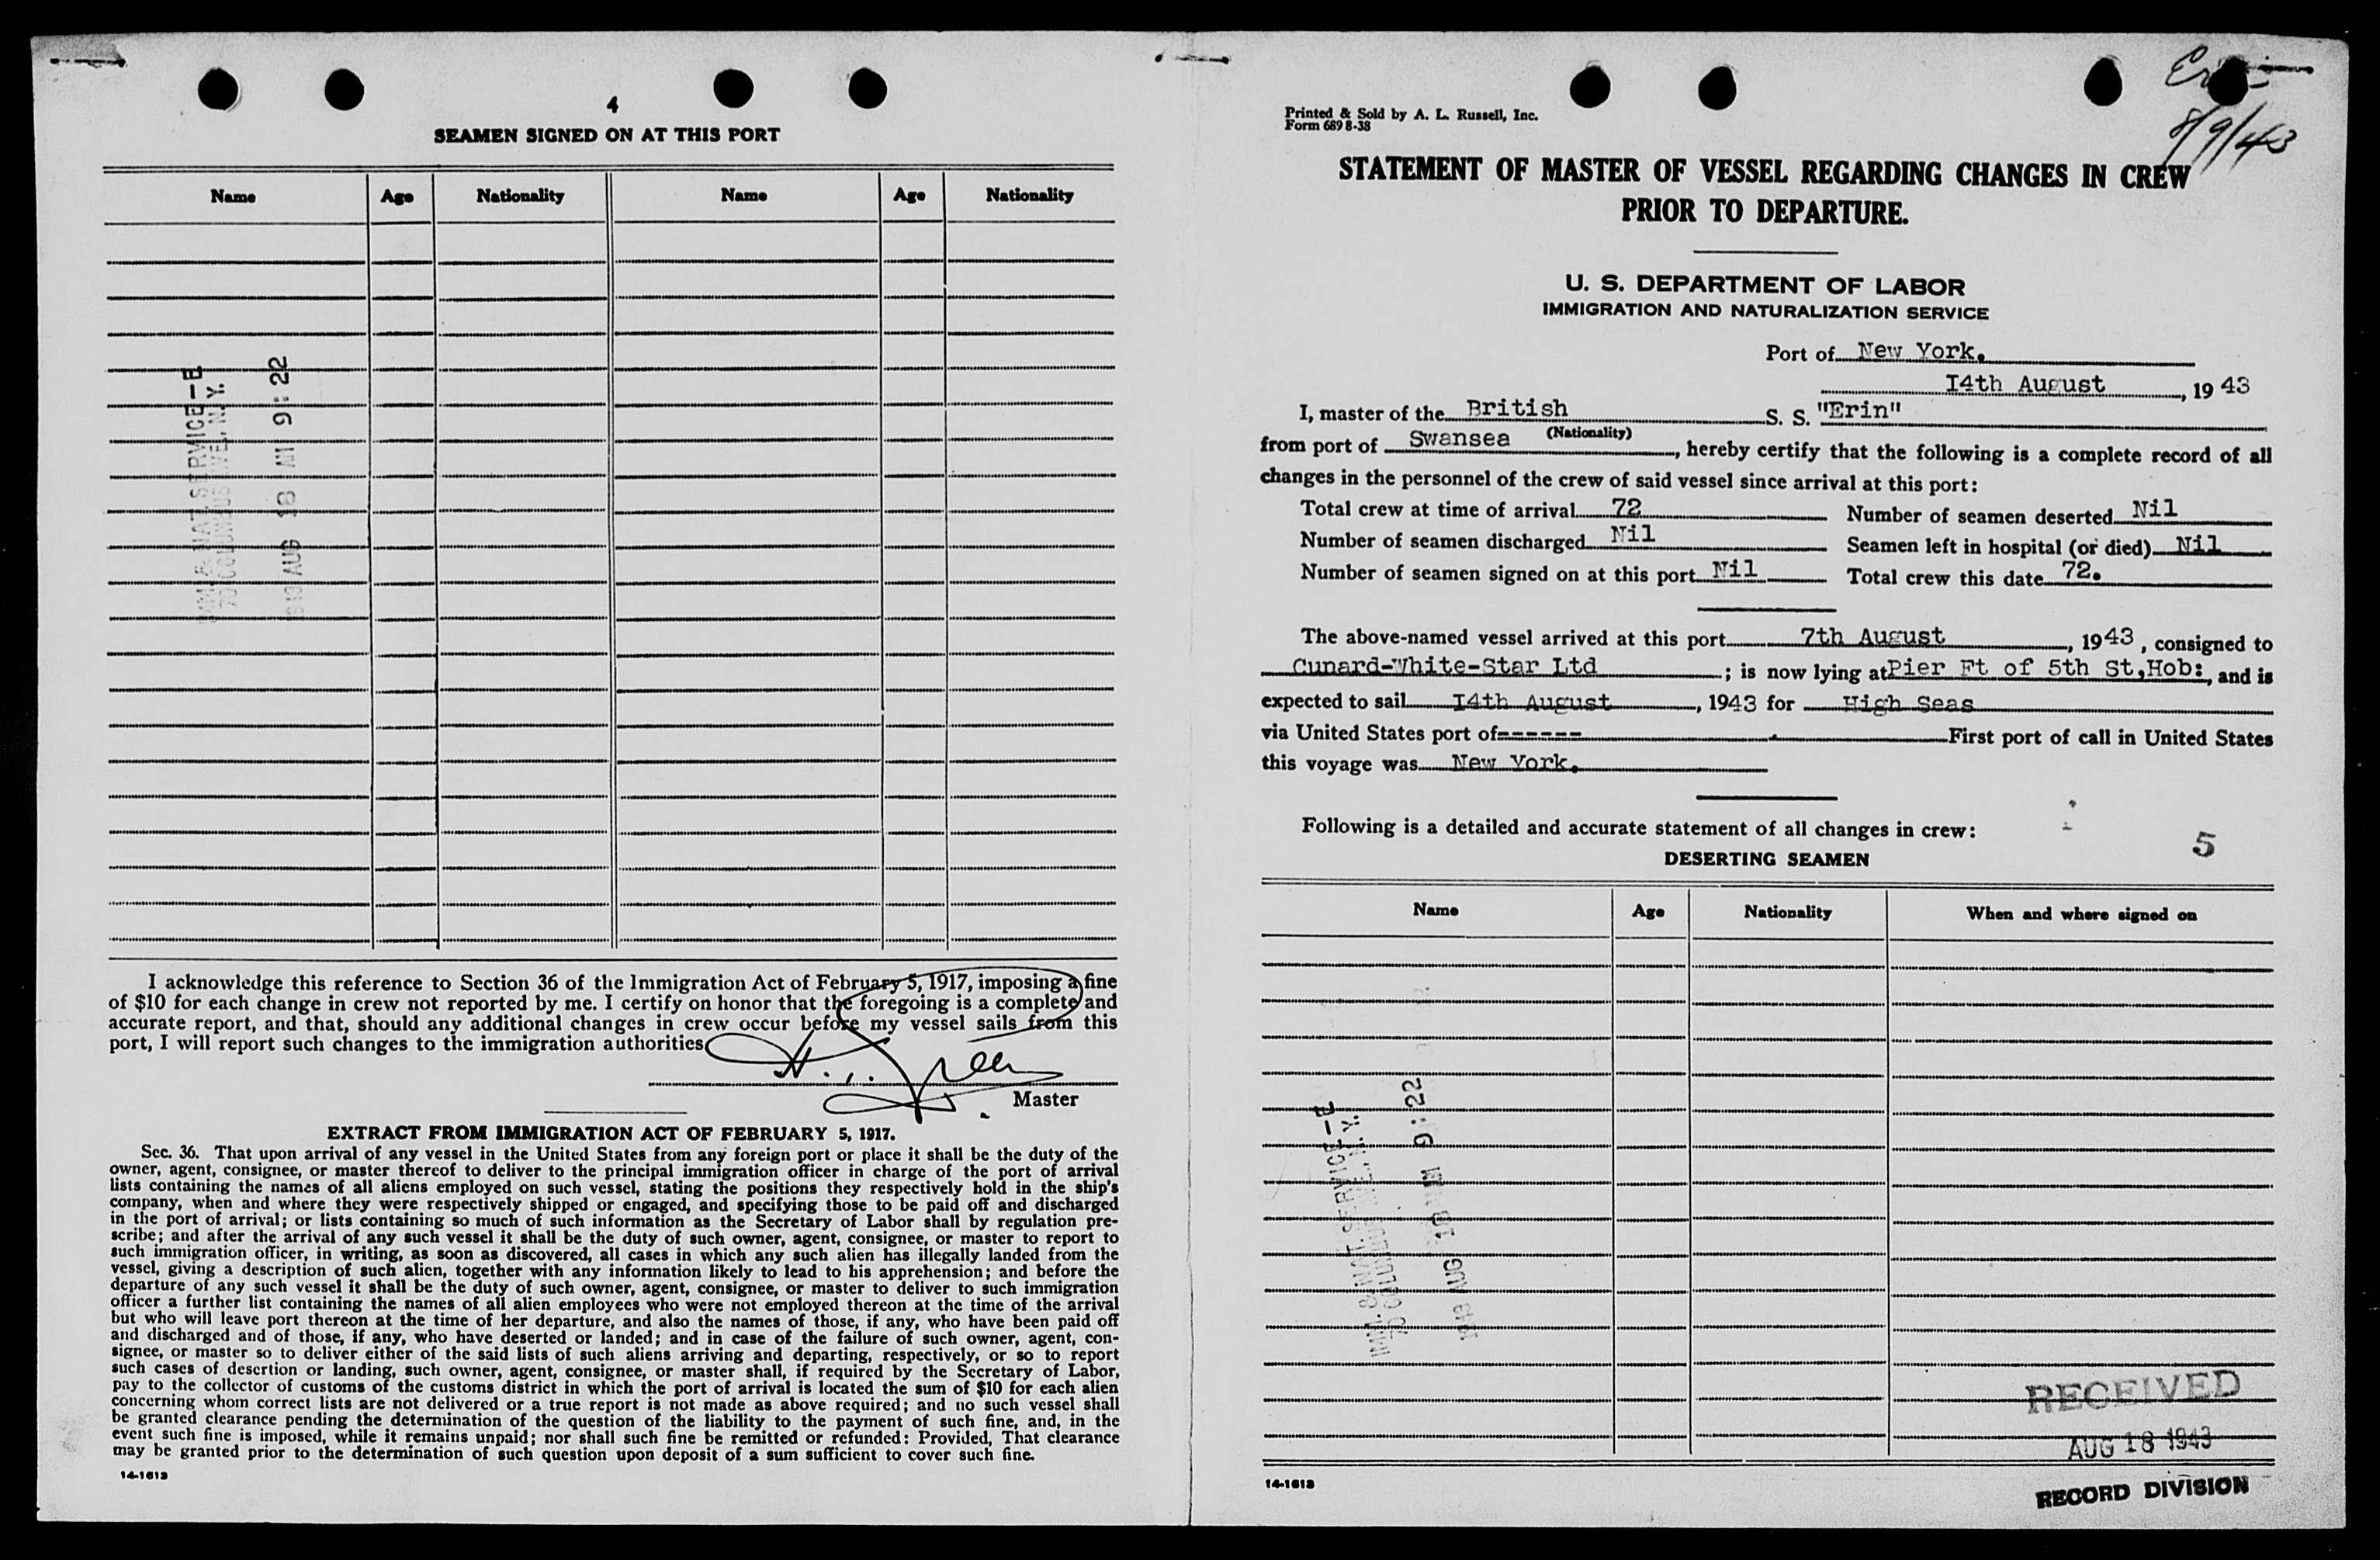 4
SEAMEN SIGNED ON AT THIS PORT
Name Age Nationality Name Age Nationality
SERVICE-E
N. Y.
AUG 18 AM 9:22
I acknowledge this reference to Section 36 of the Immigration Act of February 5, 1917, imposing a fine
of $10 for each change in crew not reported by me. I certify on honor that the foregoing is a complete and
accurate report, and that, should any additional changes in crew occur before my vessel sails from this
port, I will report such changes to the immigration authorities
Master
EXTRACT FROM IMMIGRATION ACT OF FEBRUARY 5, 1917.
Sec. 36. That upon arrival of any vessel in the United States from any foreign port or place it shall be the duty of the
owner, agent, consignee, or master thereof to deliver to the principal immigration officer in charge of the port of arrival
lists containing the names of all aliens employed on such vessel, stating the positions they respectively hold in the ship's
company, when and where they were respectively shipped or engaged, and specifying those to be paid off and discharged
in the port of arrival; or lists containing so much of such information as the Secretary of Labor shall by regulation pre-
scribe; and after the arrival of any such vessel it shall be the duty of such owner, agent, consignee, or master to report to
such immigration officer, in writing, as soon as discovered, all cases in which any such alien has illegally landed from the
vessel, giving a description of such alien, together with any information likely to lead to his apprehension; and before the
departure of any such vessel it shall be the duty of such owner, agent, consignee, or master to deliver to such immigration
officer a further list containing the names of all alien employees who were not employed thereon at the time of the arrival
but who will leave port thereon at the time of her departure, and also the names of those, if any, who have been paid off
and discharged and of those, if any, who have deserted or landed; and in case of the failure of such owner, agent, con-
signee, or master so to deliver either of the said lists of such aliens arriving and departing, respectively, or so to report
such cases of desertion or landing, such owner, agent, consignee, or master shall, if required by the Secretary of Labor,
pay to the collector of customs of the customs district in which the port of arrival is located the sum of $10 for each alien
concerning whom correct lists are not delivered or a true report is not made as above required; and no such vessel shall
be granted clearance pending the determination of the question of the liability to the payment of such fine, and, in the
event such fine is imposed, while it remains unpaid; nor shall such fine be remitted or refunded: Provided, That clearance
may be granted prior to the determination of such question upon deposit of a sum sufficient to cover such fine.
14-1613
8/9/43
Printed & Sold by A. L. Russell, Inc.
Form 689 8-38
STATEMENT OF MASTER OF VESSEL REGARDING CHANGES IN CREW
PRIOR TO DEPARTURE.
U. S. DEPARTMENT OF LABOR
IMMIGRATION AND NATURALIZATION SERVICE
Port of New York.
I4th August, 1943
I, master of the British S. S. "Erin"
(Nationality)
from port of Swansea, hereby certify that the following is a complete record of all
changes in the personnel of the crew of said vessel since arrival at this port:
Total crew at time of arrival 72 Number of seamen deserted Nil
Number of seamen discharged Nil Seamen left in hospital (or died) Nil
Number of seamen signed on at this port Nil Total crew this date 72.
The above-named vessel arrived at this port 7th August, 1943, consigned to
Cunard-White-Star Ltd; is now lying at Pier Ft of 5th St,Hob:, and is
expected to sail I4th August, 1943 for High Seas
via United States port of ------ First port of call in United States
this voyage was New York.
Following is a detailed and accurate statement of all changes in crew:
5
DESERTING SEAMEN
Name Age Nationality When and where signed on
SERVICE-E
N. Y.
AUG 18 AM 9:22
RECEIVED
AUG 18 1943
RECORD DIVISION
14-1613